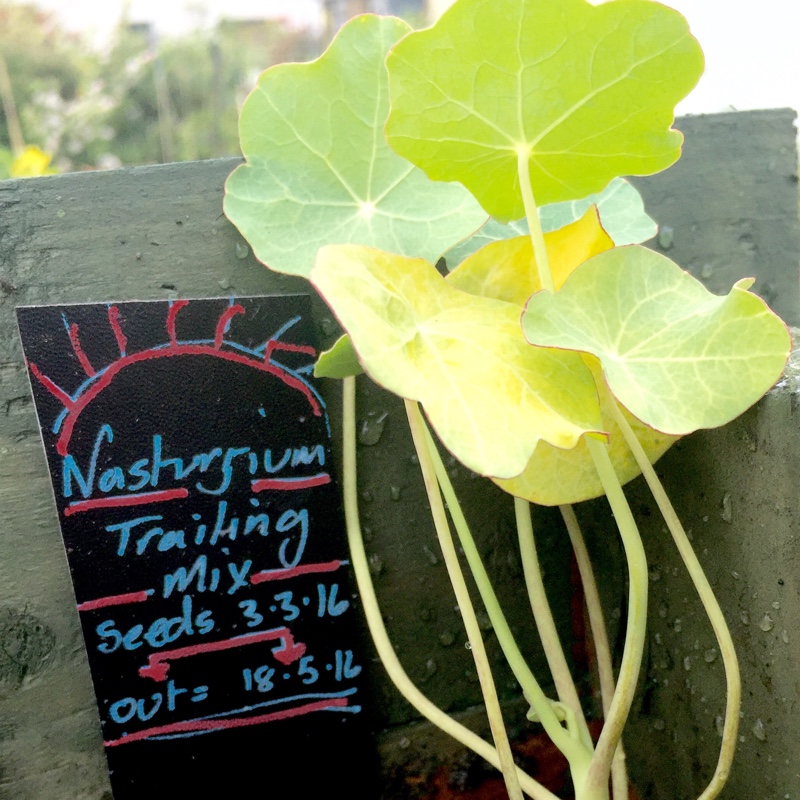 Nasturgium
Trailing
Mix
Seeds 3.3.16
out= 18.5.16